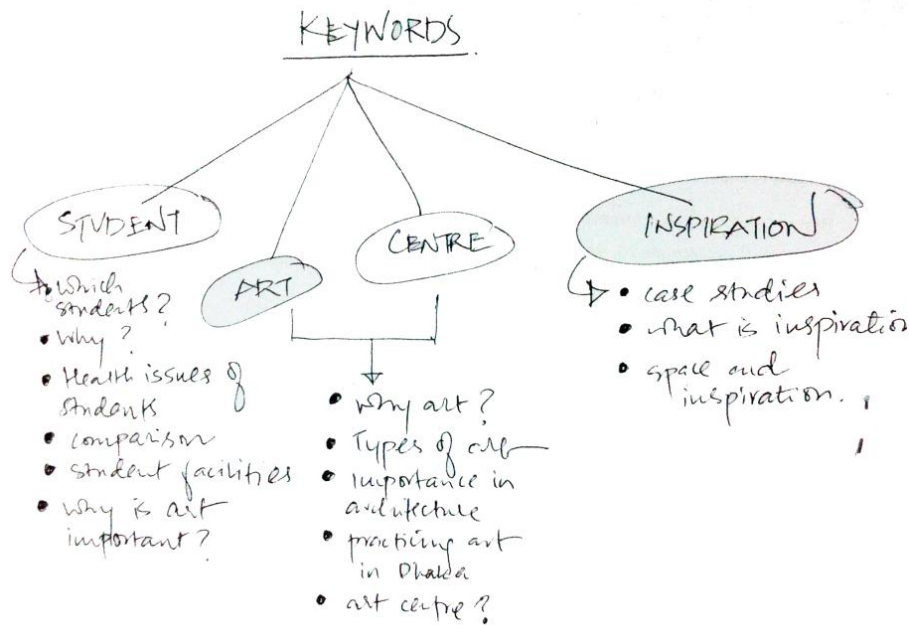 KEYWORDS
STUDENT
• Which
students?
• Why?
• Health issues of
students
• comparison
• student facilities
• why is art
important?
ART
CENTRE
• why art?
• Types of art
• importance in
architecture
• practicing art
in Dhaka
• art centre?
INSPIRATION
• case studies
• what is inspiration
• space and
inspiration.